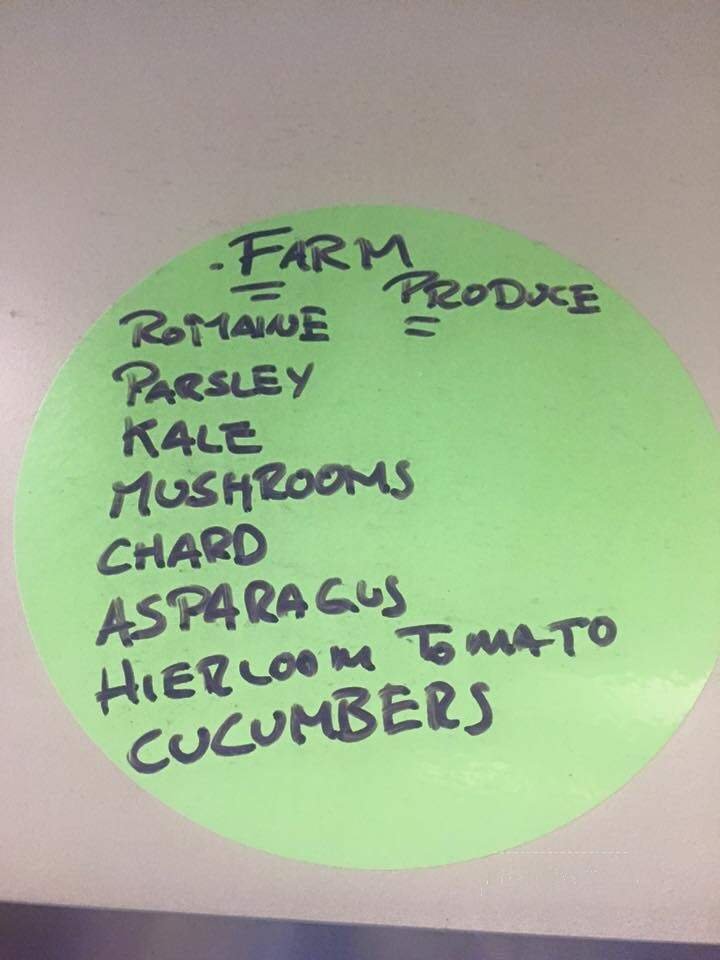 .FARM
PRODUCE
ROMAINE
PARSLEY
KALE
MUSHROOMS
CHARD
ASPARAGUS
HIERLOOM TOMATO
CUCUMBERS